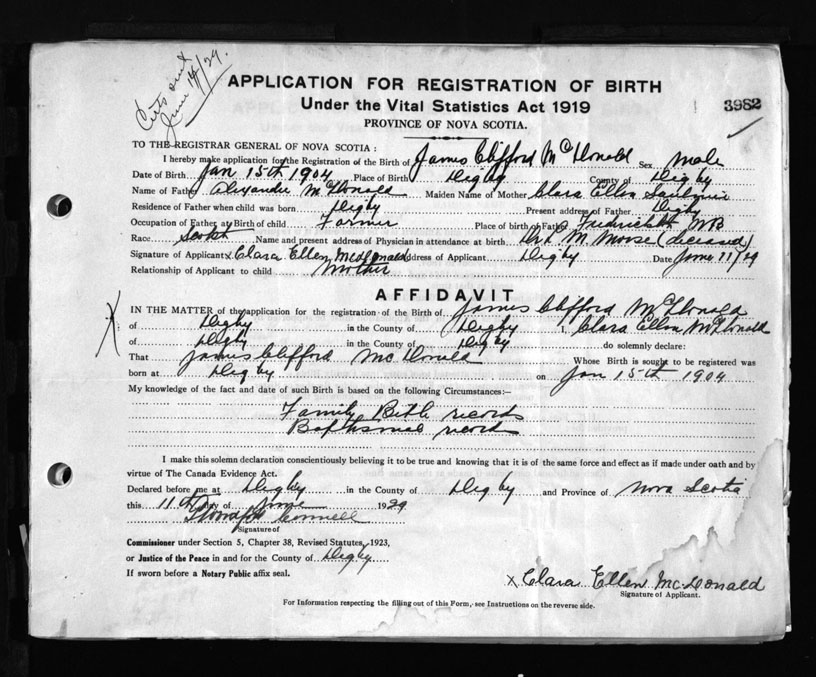 Certs sent
June 14/29.
APPLICATION FOR REGISTRATION OF BIRTH
Under the Vital Statistics Act 1919
3982
PROVINCE OF NOVA SCOTIA.
TO THE REGISTRAR GENERAL OF NOVA SCOTIA :
I hereby make application for the Registration of the Birth of James Clifford McDonald Sex male
Date of Birth Jan 15th 1904 Place of Birth Digby County of Digby
Name of Father Alexander McDonald Maiden Name of Mother Clara Ellen
Residence of Father when child was born Digby Present address of Father Digby
Occupation of Father at Birth of child Farmer Place of birth of Father NB
Race Scotch Name and present address of Physician in attendance at birth M. Morse (deceased)
Signature of Applicant x Clara Ellen McDonald Address of Applicant Digby Date June 11/29
Relationship of Applicant to child mother
AFFIDAVIT
IN THE MATTER of the application for the registration of the Birth of James Clifford McDonald
of Digby in the County of Digby I, Clara Ellen McDonald
of Digby in the County of Digby do solemnly declare:
That James Clifford McDonald Whose Birth is sought to be registered was
born at Digby on Jan 15th 1904
My knowledge of the fact and date of such Birth is based on the following Circumstances:—
Family Bible records
Baptismal records
I make this solemn declaration conscientiously believing it to be true and knowing that it is of the same force and effect as if made under oath and by
virtue of The Canada Evidence Act.
Declared before me at Digby in the County of Digby and Province of Nova Scotia
this 11th day of June 1929
Signature of
Commissioner under Section 5, Chapter 38, Revised Statutes, 1923,
or Justice of the Peace in and for the County of Digby
If sworn before a Notary Public affix seal.
x Clara Ellen McDonald
Signature of Applicant.
For Information respecting the filling out of this Form, see Instructions on the reverse side.